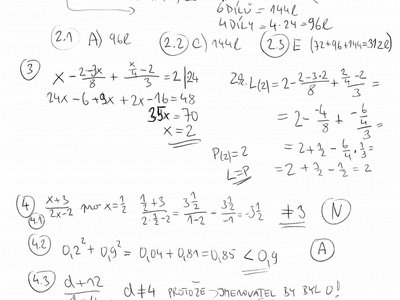 6 DÍLŮ = 144ℓ
4 DÍLY = 4·24 = 96ℓ
2.1 A) 96ℓ 2.2 C) 144ℓ 2.3 E (72+96+144=312ℓ)
3
x - (2-3x)/8 + (x/4 - 2)/3 = 2 |24
24x - 6 + 9x + 2x - 16 = 48
35x = 70
x = 2
Zk. L(2) = 2 - (2-3·2)/8 + (2/4 - 2)/3 =
= 2 - (-4)/8 + (-6/4)/3 =
= 2 + 1/2 - 6/4 · 1/3 =
= 2 + 1/2 - 1/2 = 2
P(2) = 2
L = P
4
4.1 (x+3)/(2x-2) pro x = 1/2 (1/2 + 3)/(2·1/2 - 2) = (3 1/2)/(1-2) = (3 1/2)/(-1) = -3 1/2 ≠ 3 N
4.2 0,2² + 0,9² = 0,04 + 0,81 = 0,85 < 0,9 A
4.3 d+12 d≠4 PROTOŽE JMENOVATEL BY BYL 0!